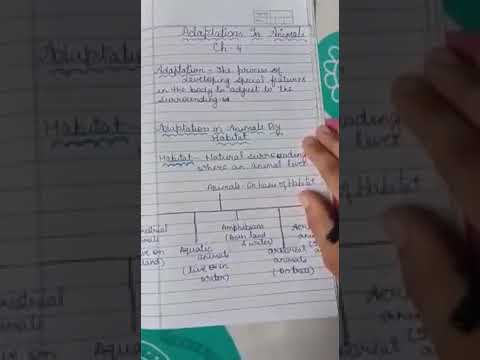 Adaptations In Animals
Ch - 4
Adaptation - The process of
developing special features
in the body to adjust to the
surrounding is
Adaptation in Animals By
Habitat
Habitat - Natural surrounding
where an animal lives
Animals On basis of Habitat
Aquatic
animals
(live on in
water)
Amphibians
(both land
& water)
arboreal
animals
(on trees)